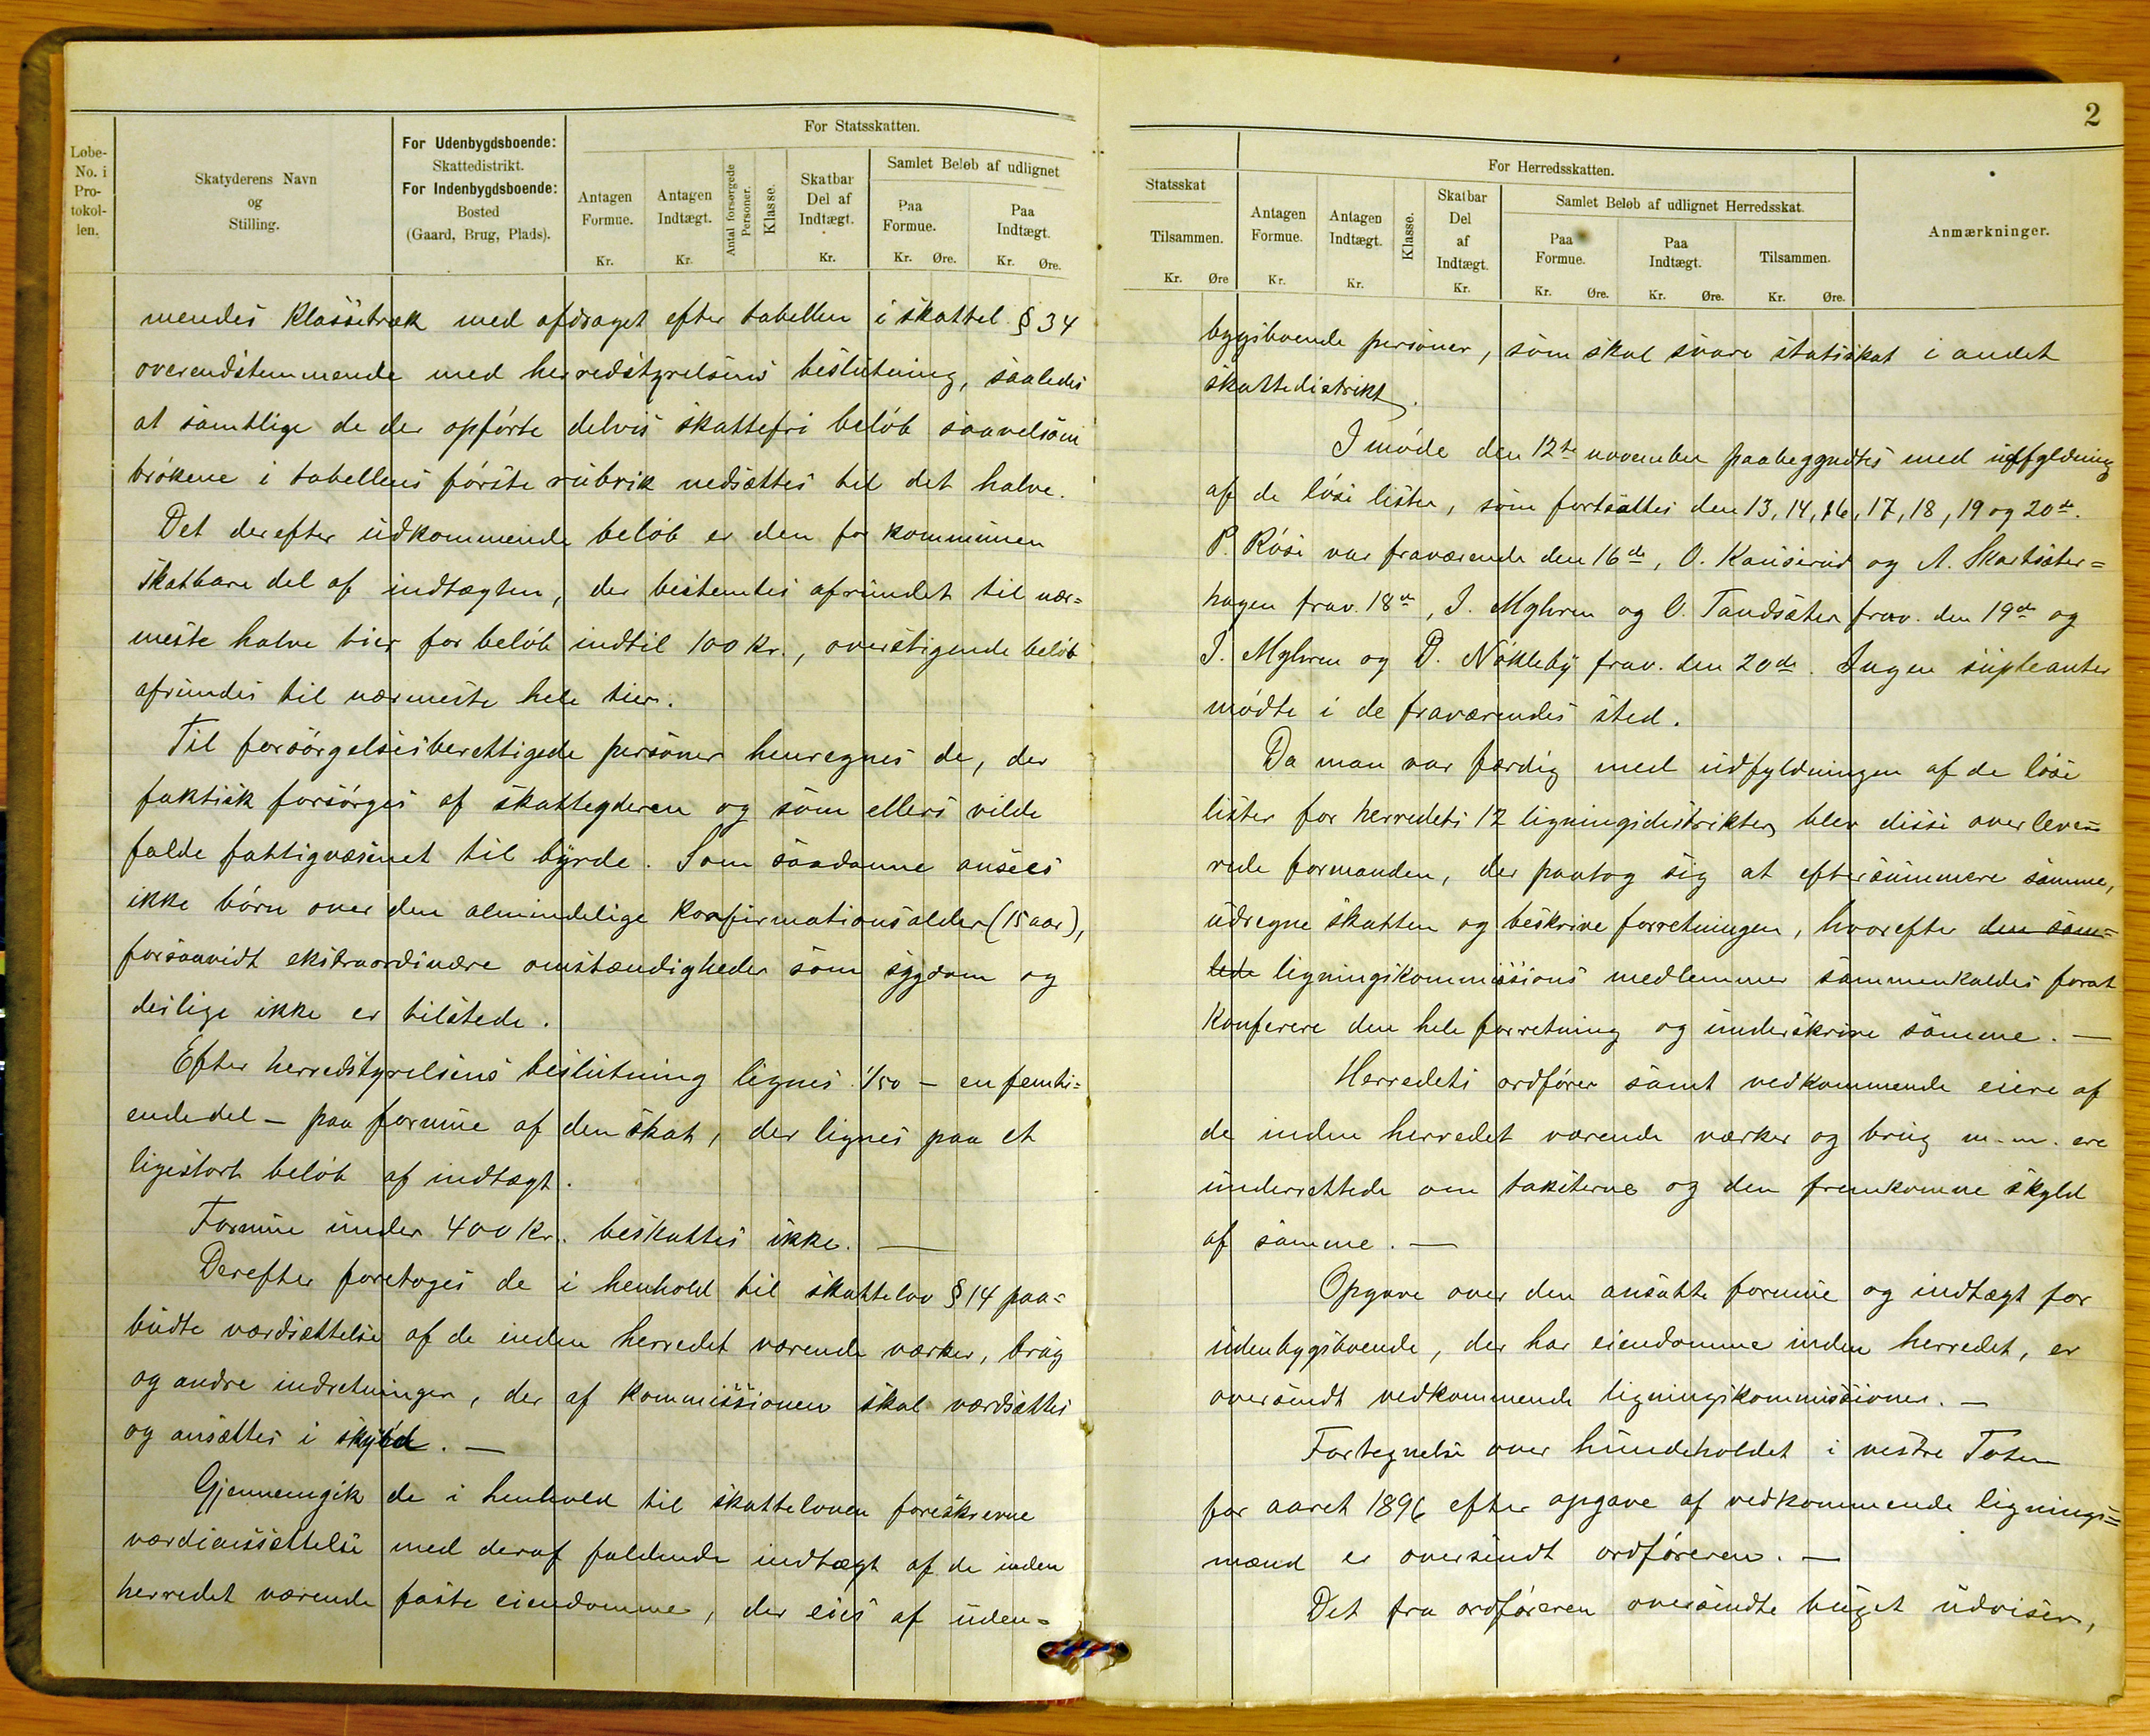 Løbe-No. i Protokollen.
Skatyderens Navn og Stilling.
For Udenbygdsboende: Skattedistrikt. For Indenbygdsboende: Bosted (Gaard, Brug, Plads).
For Statsskatten.
Antagen Formue. Kr.
Antagen Indtægt. Kr.
Antal forsørgede Personer.
Klasse.
Skatbar Del af Indtægt. Kr.
Samlet Beløb af udlignet
Paa Formue. Kr. Øre.
Paa Indtægt. Kr. Øre.
mendes Klassetræk med afdraget efter tabellen i skattel. § 34
overendstemmende med herredstyrelsens beslutning, saaledes
at samtlige de der opførte delvis skattefri beløb saavelsom
brøkene i tabellens første rubrik nedsættes til det halve.
Det derefter udkommende beløb er den for kommunen
skatbare del af indtægten, der bestemtes afrundet til nær=
meste halve tier for beløb indtil 100 Kr., overstigende beløb
afrundes til nærmeste hele tier.
Til forsørgelsesberettigede personer henregnes de, der
faktisk forsørges af skatteyderen og som ellers vilde
falde fattigvæsenet til byrde. Som saadanne ansees
ikke børn over den almindelige konfirmationsalder (15 aar),
forsaavidt ekstraordinære omstændigheder som sygdom og
deslige ikke er tilstede.
Efter herredstyrelsens beslutning lignes 1/50 – en femti=
endedel – paa formue af den skat, der lignes paa et
ligestort beløb af indtægt.
Formue under 400 Kr. beskattes ikke. —
Derefter foretoges de i henhold til skattelov § 14 paa=
budte værdisættelse af de inden herredet værende værker, brug
og andre indretninger, der af kommissionen skal værdsættes
og ansættes i skyld. —
Gjennemgik de i henhold til skatteloven foreskrevne
værdiansættelse med deraf faldende indtægt af de inden
herredet værende faste eiendomme, der eies af uden=
2
Statsskat Tilsammen. Kr. Øre
For Herredsskatten.
Antagen Formue. Kr.
Antagen Indtægt. Kr.
Klasse.
Skatbar Del af Indtægt. Kr.
Samlet Beløb af udlignet Herredsskat.
Paa Formue. Kr. Øre.
Paa Indtægt. Kr. Øre.
Tilsammen. Kr. Øre.
Anmærkninger.
bygsboende personer, som skal svare statsskat i andet
skattedistrikt.
I møde den 12te november paabegyndtes med udfyldning
af de løse lister, som fortsattes den 13, 14, 16, 17, 18, 19 og 20de.
P. Røse var fraværende den 16de, O. Kauserud og A. Skartsæter=
hagen frav. 18de, J. Myhren og O. Tandsæter frav. den 19de og
J. Myhren og P. Nøkleby frav. den 20de. Ingen supleanter
mødte i de fraværendes sted.
Da man var færdig med udfyldningen af de løse
lister for herredets 12 ligningsdistrikter, blev disse overleve=
rede formanden, der paatog sig at eftersummere samme,
udregne skatten og beskrive forretningen, hvorefter den sam=
lede ligningskommissions medlemmer sammenkaldes forat
Konferere den hele forretning og underskrive samme. —
Herredets ordfører samt vedkommende eiere af
de inden herredet værende værker og brug m.m. ere
underrettede om taksterne og den fremkomne skyld
af samme. —
Opgave over den ansatte formue og indtægt for
udenbygsboende, der har eiendomme inden herredet, er
oversendt vedkommende ligningskommissioner. —
Fortegnelse over hundeholdet i vestre Toten
for aaret 1896 efter opgave af vedkommende lignings=
mænd er oversendt ordføreren. —
Det fra ordføreren oversendte buget udviser,